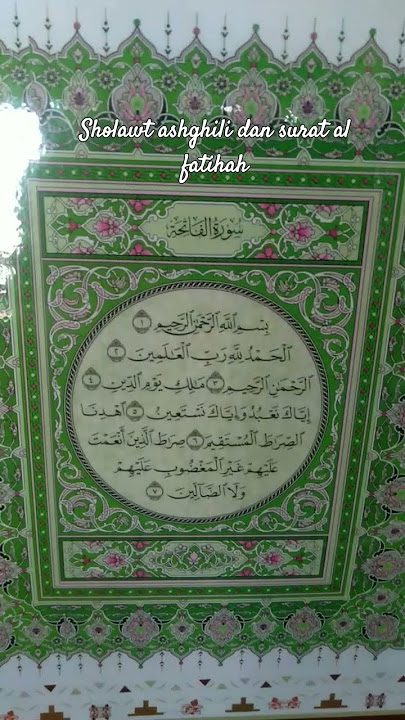 Sholawt ashghili dan surat al
fatihah
سورة الفاتحة
بِسْمِ اللَّهِ الرَّحْمَٰنِ الرَّحِيمِ ١
الْحَمْدُ لِلَّهِ رَبِّ الْعَالَمِينَ ٢
الرَّحْمَٰنِ الرَّحِيمِ ٣ مَالِكِ يَوْمِ الدِّينِ ٤
إِيَّاكَ نَعْبُدُ وَإِيَّاكَ نَسْتَعِينُ ٥ اهْدِنَا
الصِّرَاطَ الْمُسْتَقِيمَ ٦ صِرَاطَ الَّذِينَ أَنْعَمْتَ
عَلَيْهِمْ غَيْرِ الْمَغْضُوبِ عَلَيْهِمْ
وَلَا الضَّالِّينَ ٧